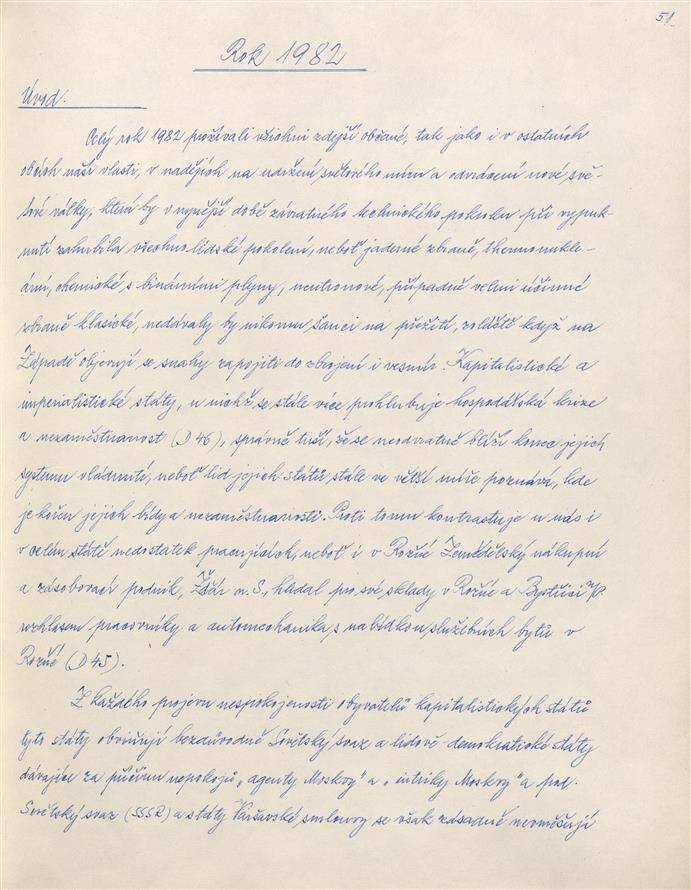 51.
Rok 1982
Úvod.
Celý rok 1982 prožívali všichni zdejší občané, tak jako i v ostatních
obcích naší vlasti, v nadějích na udržení světového míru a odvrácení nové svě-
tové války, která by v nynější době závratného technického pokroku při vypuk-
nutí zahubila všechno lidské pokolení, neboť jaderné zbraně, thermonukle-
ární, chemické s binárními plyny, neutronové, případně velmi účinné
zbraně klasické, nedávaly by nikomu šanci na přežití, zvláště když na
Západě objevují se snahy zapojiti do zbrojení i vesmír. Kapitalistické a
imperialistické státy, u nichž se stále více prohlubuje hospodářská krize
a nezaměstnanost (D 46), správně tuší, že se neodvratně blíží konec jejich
systemu vládnutí, neboť lid jejich států stále ve větší míře poznává, kde
je kořen jejich bídy a nezaměstnanosti. Proti tomu kontrastuje u nás i
v celém státě nedostatek pracujících, neboť i v Rožné Zemědělský nákupní
a zásobovací podnik, Žďár n. S., hledal pro své sklady v Rožné a Bystřici n/P.
rozhlasem pracovníky a automechanika s nabídkou služebních bytů v
Rožné (D 45).
Z každého projevu nespokojenosti obyvatelů kapitalistických států
tyto státy obviňují bezdůvodně Sovětský svaz a lidově-demokratické státy
dávajíce za příčinu nepokojů „agenty Moskvy" a „intriky Moskvy" a pod.
Sovětský svaz (SSSR) a státy Varšavské smlouvy se však zásadně nevměšují